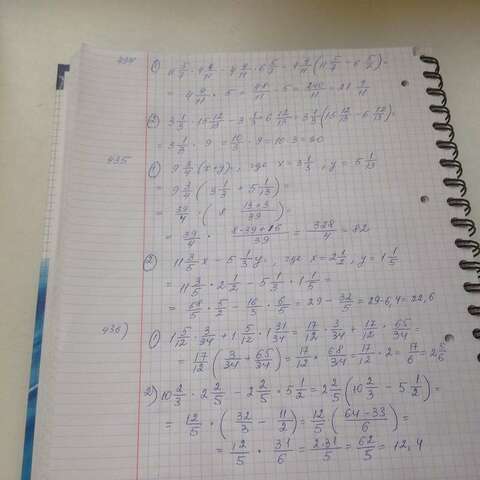 434
1) 11 5/7 · 4 4/11 - 4 4/11 · 6 5/7 = 4 4/11 (11 5/7 - 6 5/7) =
4 4/11 · 5 = 48/11 · 5 = 240/11 = 21 9/11
2) 3 1/3 · 15 12/13 - 3 1/3 · 6 12/13 = 3 1/3 (15 12/13 - 6 12/13) =
= 3 1/3 · 9 = 10/3 · 9 = 10 · 3 = 30
435
1) 9 3/4 (x+y), где x = 3 1/3, y = 5 1/13
= 9 3/4 (3 1/3 + 5 1/13) =
= 39/4 · (8 13+3/39) =
= 39/4 · 8·39+16/39 = 328/4 = 82
2) 11 3/5 x - 5 1/3 y, где x = 2 1/2, y = 1 1/5
= 11 3/5 · 2 1/2 - 5 1/3 · 1 1/5 =
= 58/5 · 5/2 - 16/3 · 6/5 = 29 - 32/5 = 29 - 6,4 = 22,6
436)
1) 1 5/12 · 3/34 + 1 5/12 · 1 31/34 = 17/12 · 3/34 + 17/12 · 65/34 =
= 17/12 (3/34 + 65/34) = 17/12 · 68/34 = 17/12 · 2 = 17/6 = 2 5/6
2) 10 2/3 · 2 2/5 - 2 2/5 · 5 1/2 = 2 2/5 (10 2/3 - 5 1/2) =
= 12/5 · (32/3 - 11/2) = 12/5 (64-33/6) =
= 12/5 · 31/6 = 2·31/5 = 62/5 = 12,4